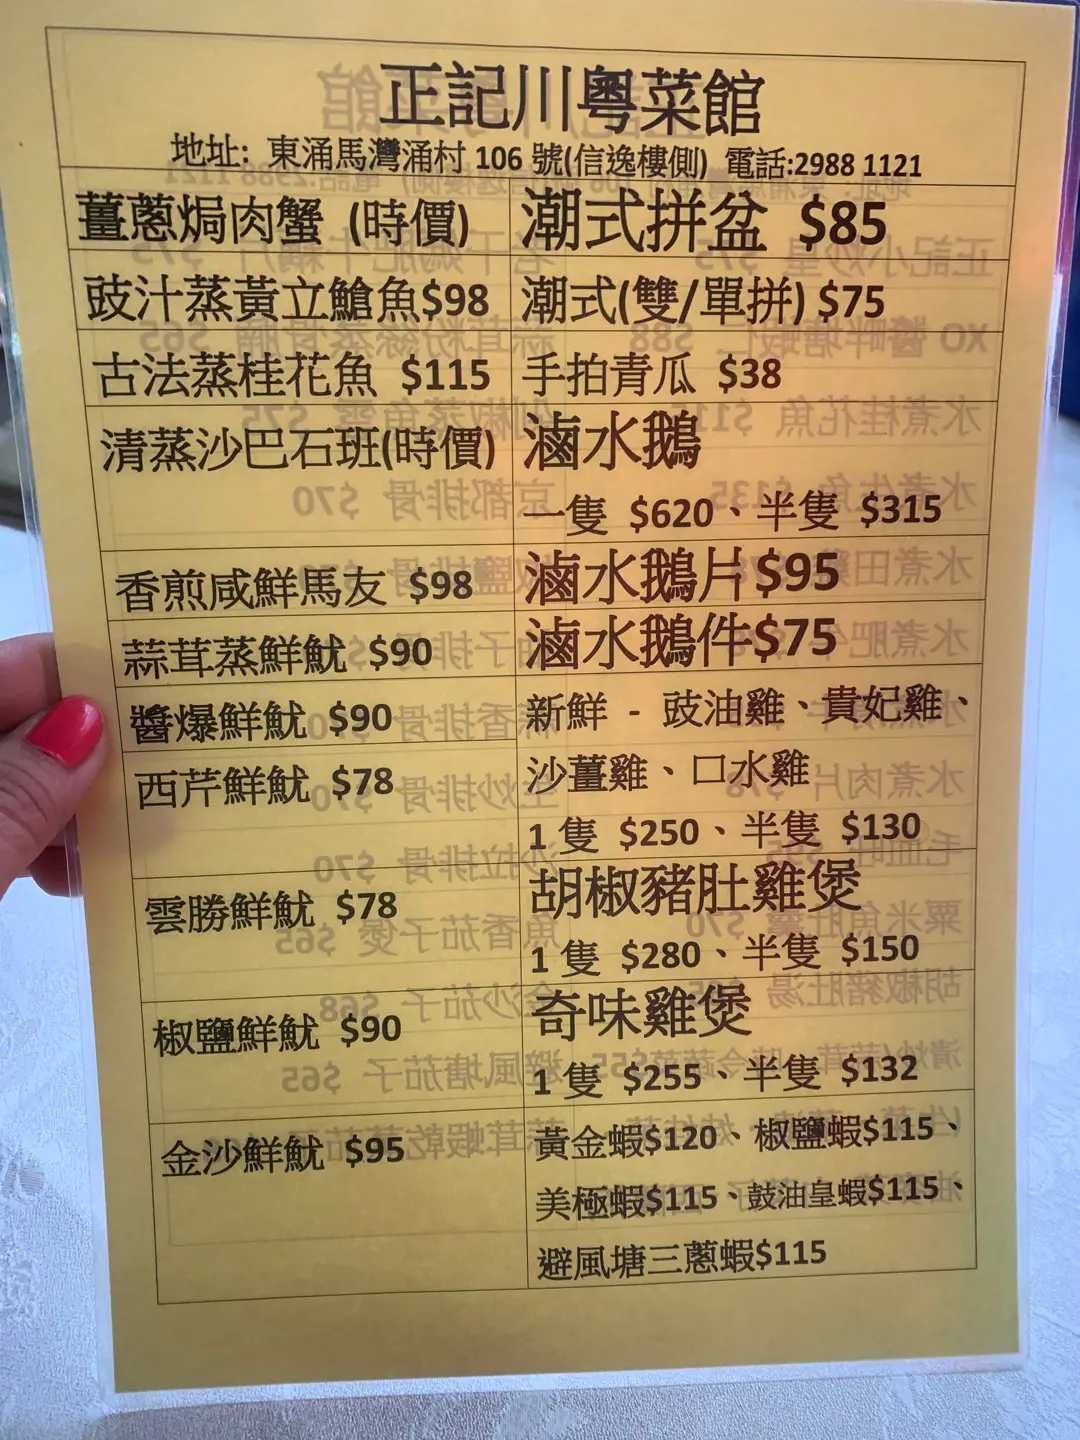 正記川粵菜館
地址: 東涌馬灣涌村 106 號(信逸樓側) 電話:2988 1121
薑蔥焗肉蟹 (時價)
豉汁蒸黃立鯧魚$98
古法蒸桂花魚 $115
清蒸沙巴石班(時價)
香煎咸鮮馬友 $98
蒜茸蒸鮮魷 $90
醬爆鮮魷 $90
西芹鮮魷 $78
雲勝鮮魷 $78
椒鹽鮮魷 $90
金沙鮮魷 $95
潮式拼盆 $85
潮式(雙/單拼) $75
手拍青瓜 $38
滷水鵝
一隻 $620、半隻 $315
滷水鵝片$95
滷水鵝件$75
新鮮 - 豉油雞、貴妃雞、
沙薑雞、口水雞
1 隻 $250、半隻 $130
胡椒豬肚雞煲
1 隻 $280、半隻 $150
奇味雞煲
1 隻 $255、半隻 $132
黃金蝦$120、椒鹽蝦$115、
美極蝦$115、鼓油皇蝦$115、
避風塘三蔥蝦$115